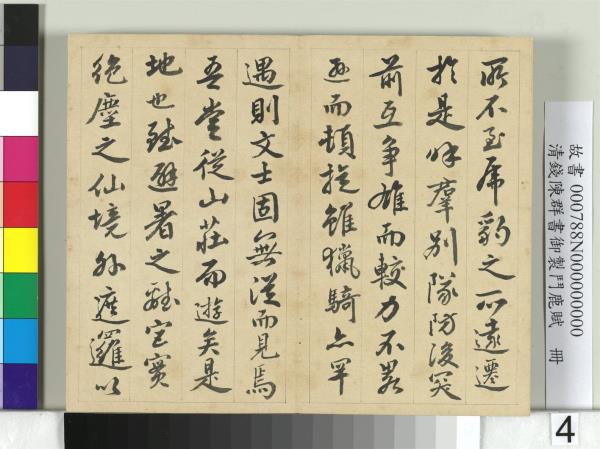 所不至虎豹之所遠遷
於是呼羣別隊防後突
前互爭雄而較力不畏
逐而頓挺雖獵騎亦罕
遇則文士固無從而見焉
吾嘗從山莊而遊矣是
地也錢避暑之離宮實
絕塵之仙境外遮邏以
故書 000788N000000000
清錢陳群書御製鬥鹿賦 冊
4